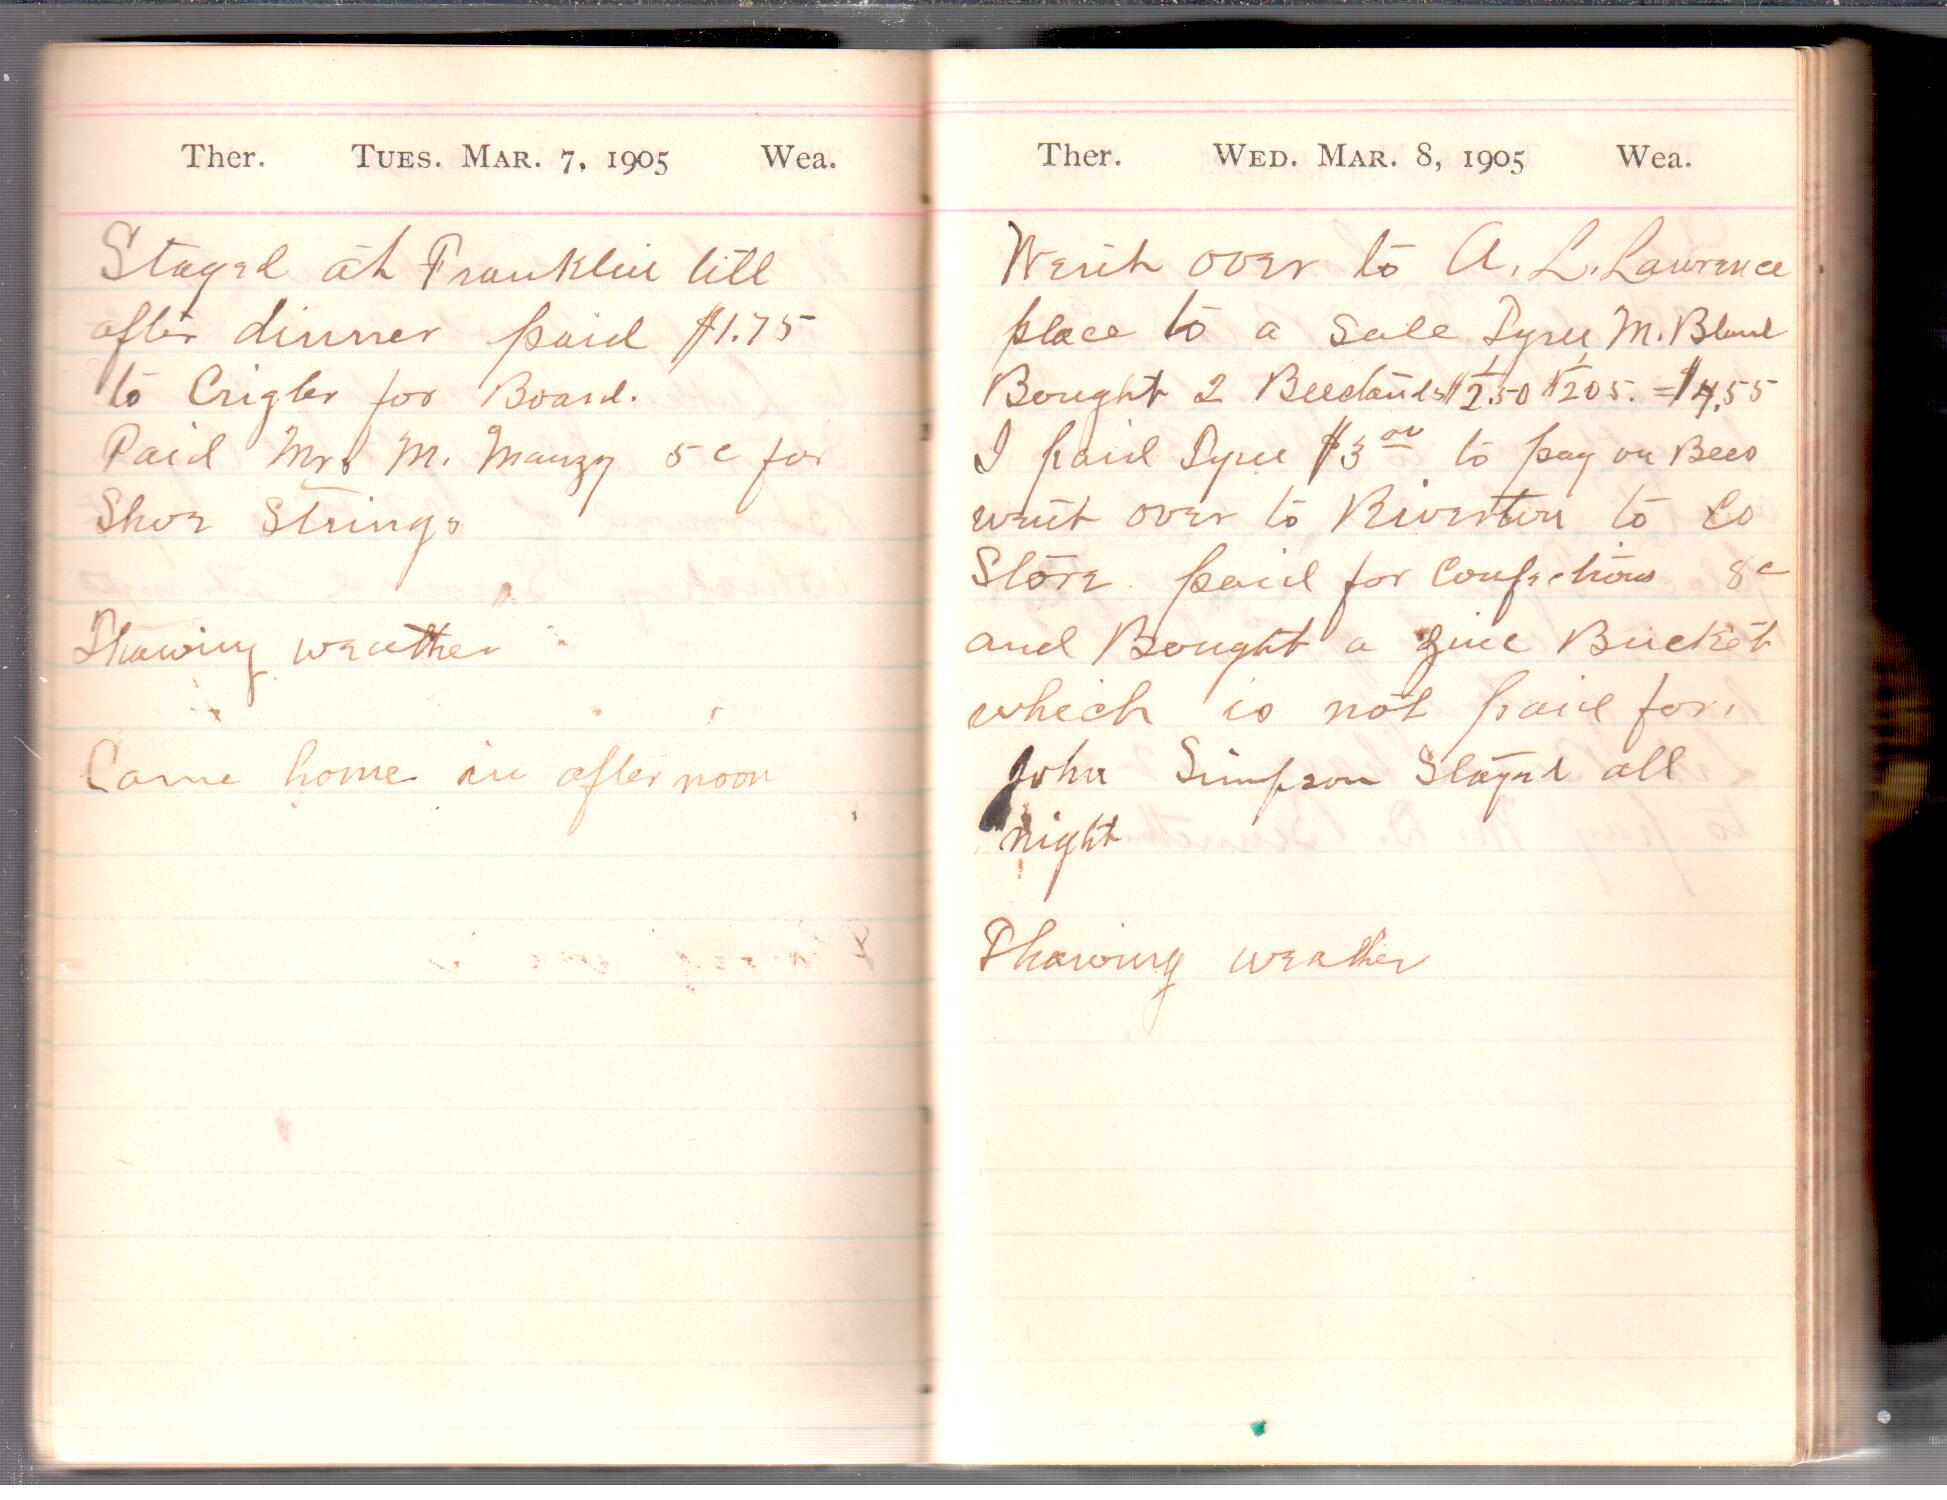 Ther. Tues. Mar. 7, 1905 Wea.
Stayed at Franklin till
after dinner paid $1.75
to Crigler for Board.
Paid Mr. M. Mauzy 5c for
Shoe Strings
Thawing weather
Came home in afternoon
Ther. Wed. Mar. 8, 1905 Wea.
Went over to A. L. Lawrence
place to a Sale Tyree M. Bland
Bought 2 $2.50 $2.05. = $4.55
I paid Tyree $3 00 to pay on Bees
went over to Riverton to Co
Store paid for Confections 8c
and Bought a Zinc Bucket
which is not paid for.
John Simpson Stayed all
night
Thawing weather